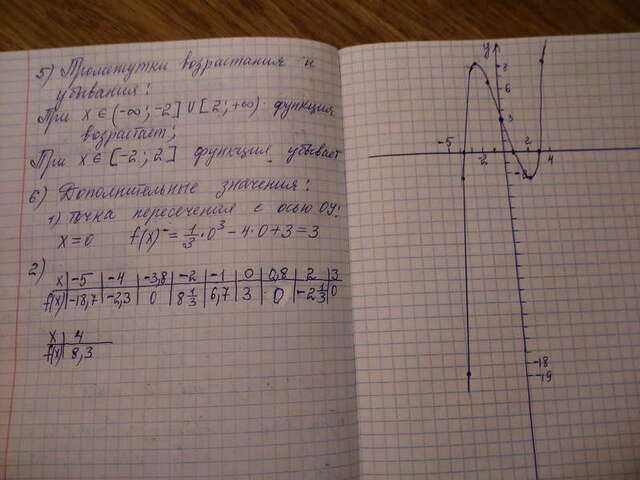 5) Промежутки возрастания и
убывания:
При x ∈ (-∞; -2] ∪ [2; +∞) функция
возрастает;
При x ∈ [-2; 2] функция убывает
6) Дополнительные значения:
1) Точка пересечения с осью ОУ:
x=0 f(x) = 1/3 · 0³ - 4·0+3=3
2)
x | -5 | -4 | -3,8 | -2 | -1 | 0 | 0,8 | 2 | 3
f(x) | -18,7 | -2,3 | 0 | 8 1/3 | 6,7 | 3 | 0 | -2 1/3 | 0
x | 4
f(x) | 8,3
y
8
6
3
-5 -2 2 4
-2
-18
-19